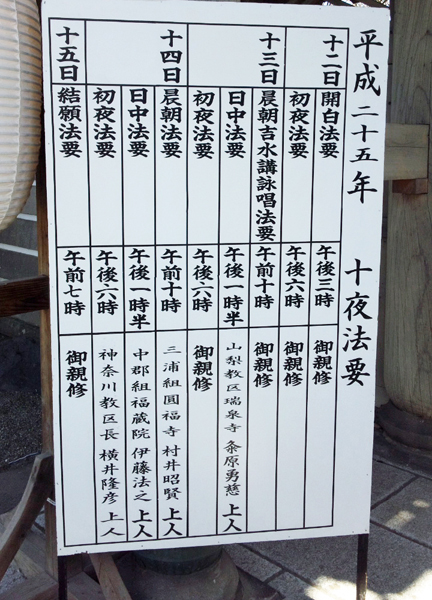 平成二十五年 十夜法要
十二日 開白法要 午後三時 御親修
初夜法要 午後六時 御親修
十三日 晨朝吉水講詠唱法要 午前十時 御親修
日中法要 午後一時半 山梨教区瑞泉寺 粂原勇慈 上人
初夜法要 午後六時 御親修
十四日 晨朝法要 午前十時 三浦組圓福寺 村井昭賢 上人
日中法要 午後一時半 中郡組福蔵院 伊藤法之 上人
初夜法要 午後六時 神奈川教区長 横井隆彦 上人
十五日 結願法要 午前七時 御親修